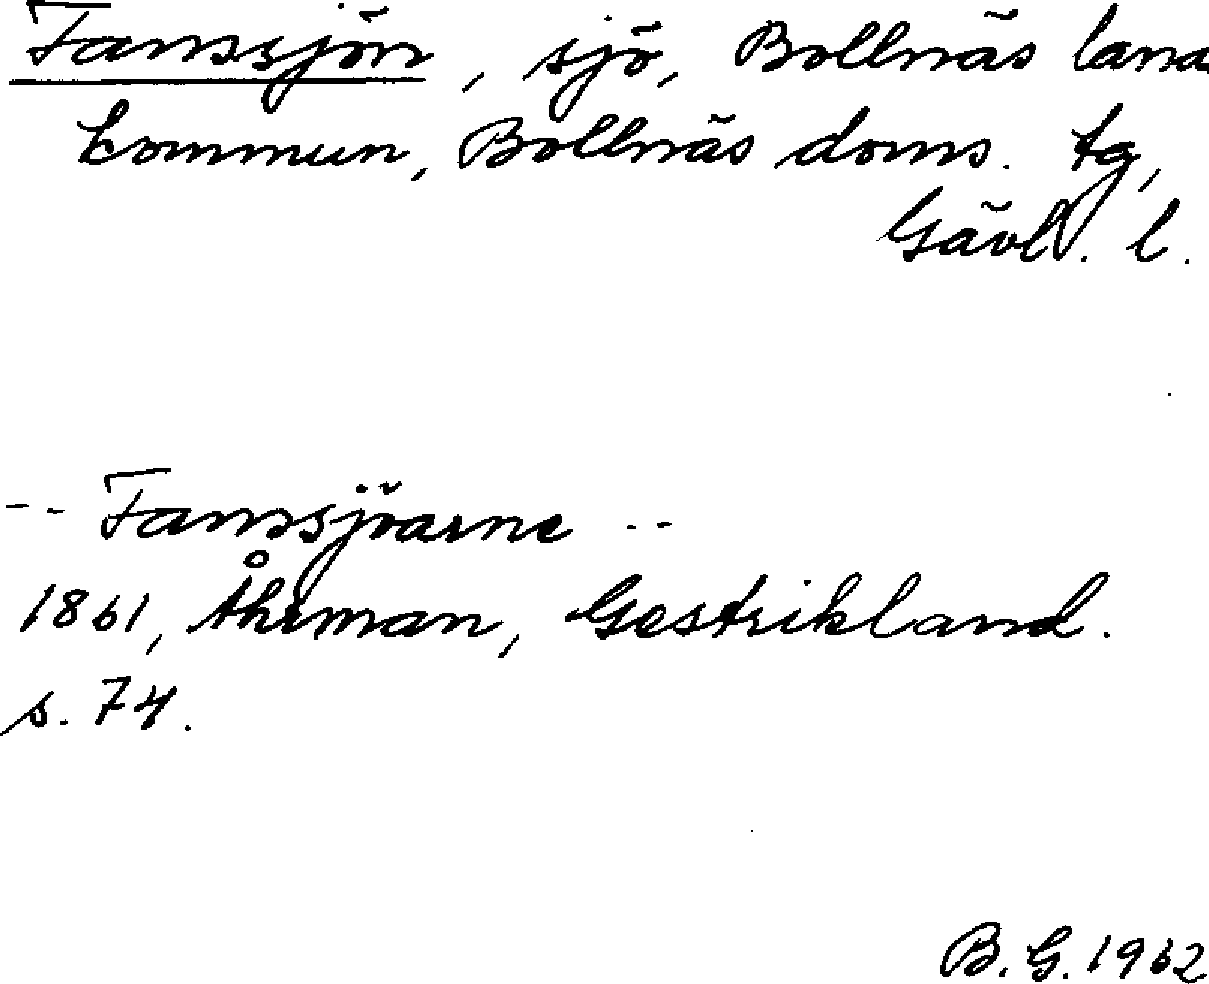 Fanssjön, sjö, Bollnäs lana
kommun, Bollnäs doms. tg,
Gävl. l.
-- Fanssjöarne --
1861, Åhrman, Gestrikland.
s. 74.
B. G. 1962